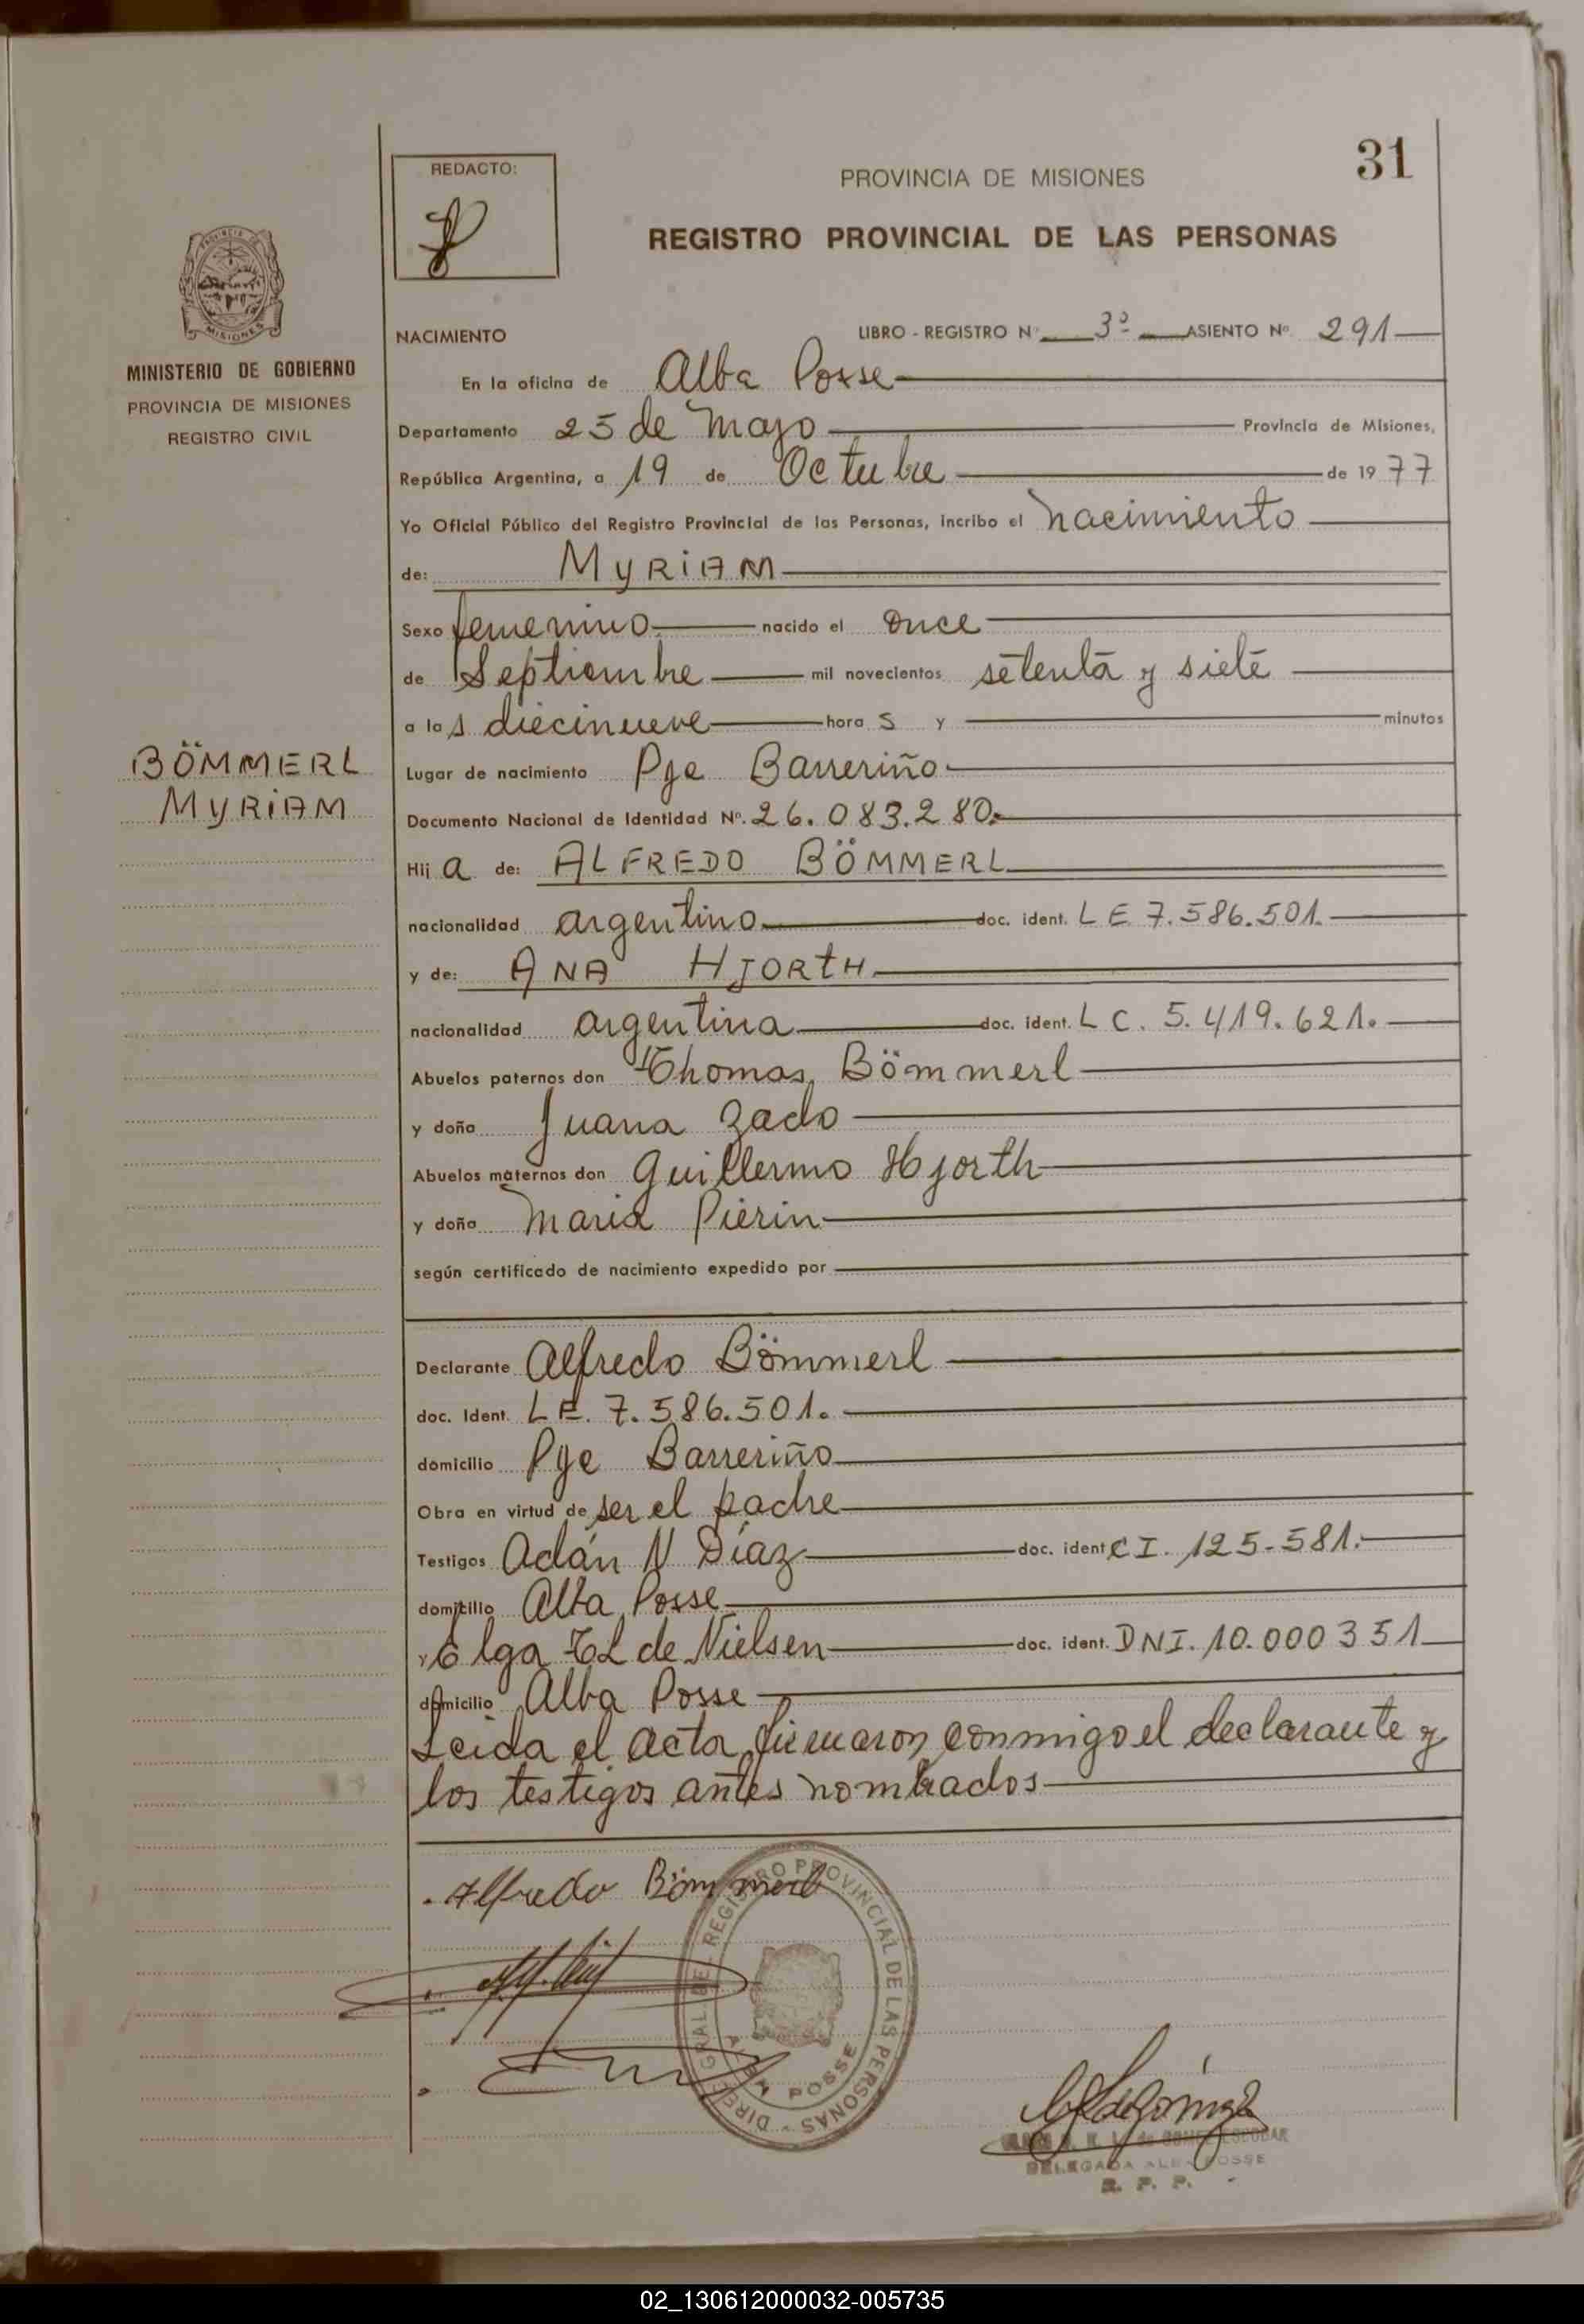 31
REDACTO:
PROVINCIA DE MISIONES
REGISTRO PROVINCIAL DE LAS PERSONAS
MISIONES
MINISTERIO DE GOBIERNO
PROVINCIA DE MISIONES
REGISTRO CIVIL
NACIMIENTO
LIBRO - REGISTRO Nº 3º ASIENTO Nº 291
En la oficina de Alba Posse
Departamento 25 de Mayo Provincia de Misiones,
República Argentina, a 19 de Octubre de 1977
Yo Oficial Público del Registro Provincial de las Personas, incribo el nacimiento
de: MYRIAM
Sexo femenino nacido el once
de Septiembre mil novecientos setenta y siete
a las diecinueve horas y minutos
BÖMMERL
MYRIAM
Lugar de nacimiento Pje Barreriño
Documento Nacional de Identidad Nº. 26.083.280.
Hija de: ALFREDO BÖMMERL
nacionalidad argentino doc. ident. LE 7.586.501.
y de: ANA HJORTH
nacionalidad argentina doc. ident. LC. 5.419.621.
Abuelos paternos don Thomas Bömmerl
y doña Juana Zado
Abuelos maternos don Guillermo Hjorth
y doña Maria Pierin
según certificado de nacimiento expedido por
Declarante Alfredo Bömmerl
doc. Ident. LE. 7.586.501.
domicilio Pje Barreriño
Obra en virtud de ser el padre
Testigos Adán N Díaz doc. ident CI. 125-581.
domicilio Alba Posse
y Elga de Nielsen doc. ident. DNI. 10.000351
domicilio Alba Posse
Leida el acta firmaron conmigo el declarante y
los testigos antes nombrados
Alfredo Bömmerl
DIREC. GRAL. DEL REGISTRO PROVINCIAL DE LAS PERSONAS -
ALBA POSSE
DELEGADA ALBA POSSE
R. P. P.
02_130612000032-005735